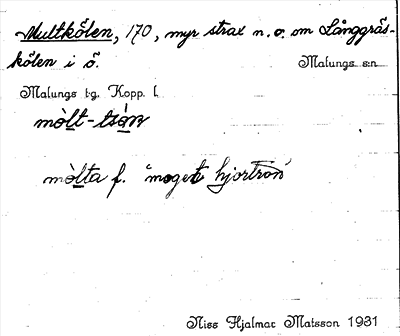 Multkölen, 170, myr strax n.o. om Långgräs-
kölen i ö. Malungs s:n
Malungs t:g. Kopp. l.
mòlt-tsán
mòlta f. "moget hjortron"
Niss Hjalmar Matsson 1931